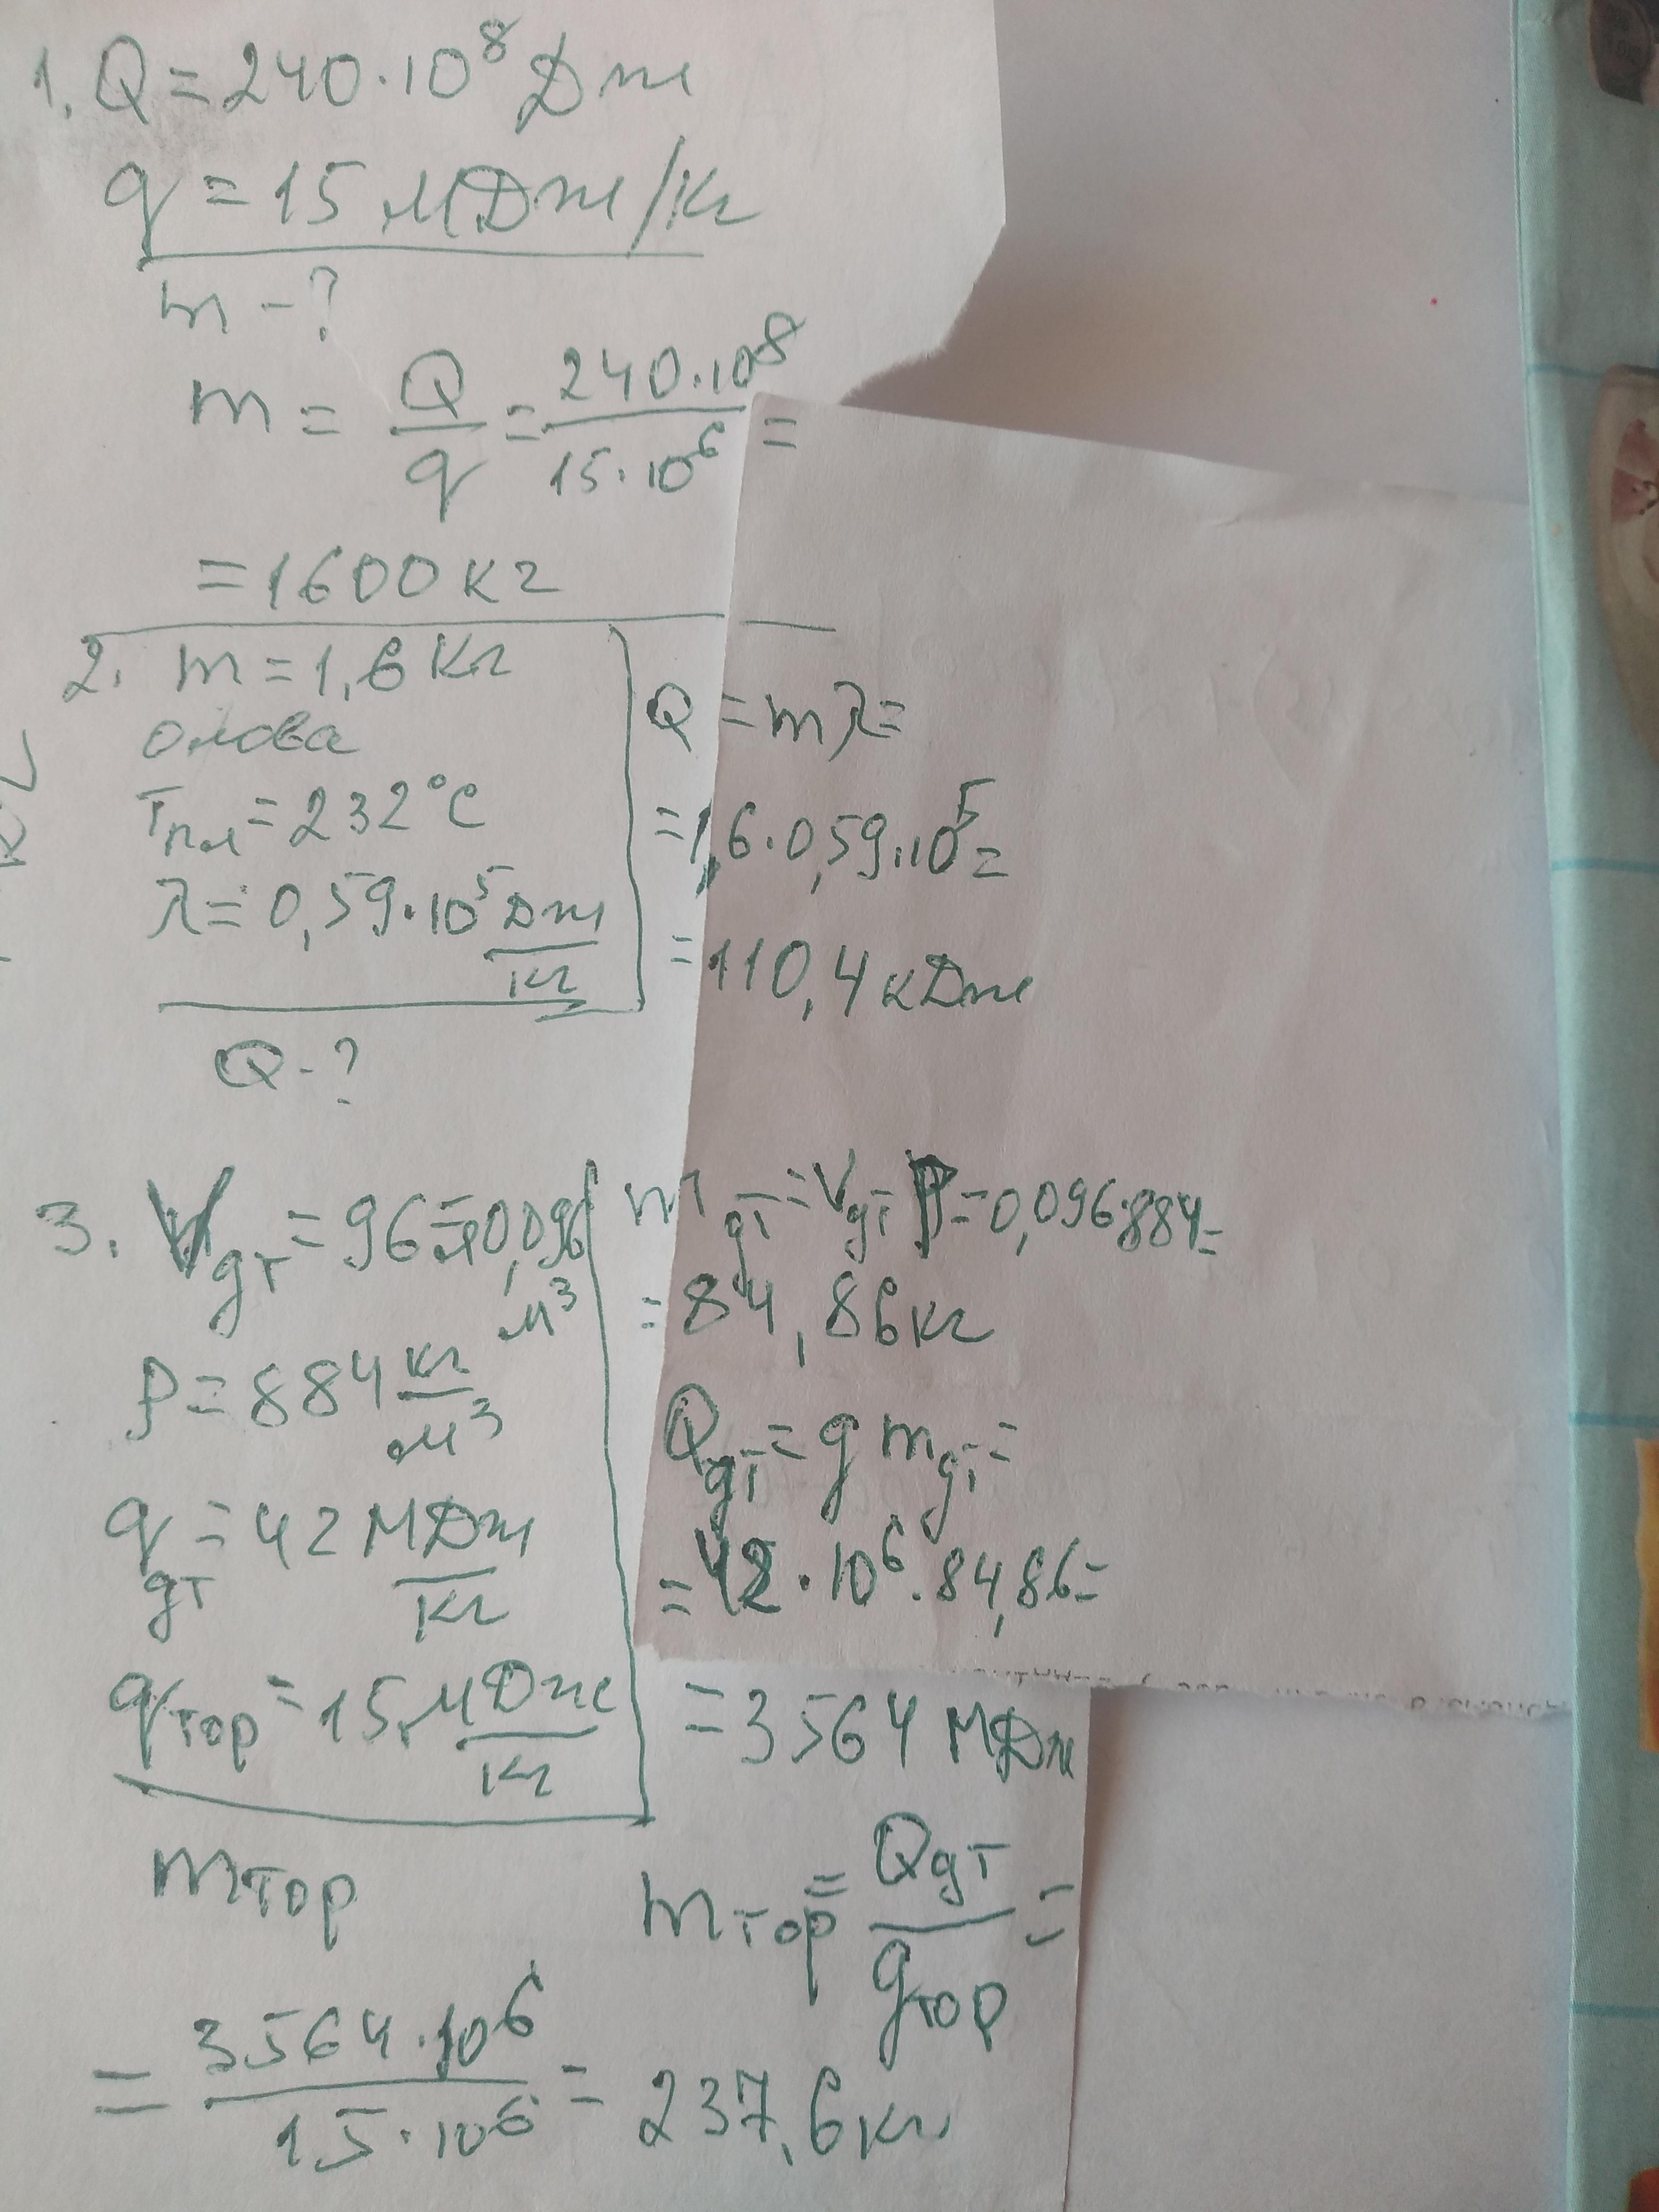 1. Q = 240·10⁸ Дж
q = 15 МДж/кг
m - ?
m = Q/q = 240·10⁸/15·10⁶ =
= 1600 кг
2. m = 1,6 кг
олова
Tпл = 232°C
λ = 0,59·10⁵ Дж/кг
Q - ?
Q = mλ =
= 1,6·0,59·10⁵ =
= 110,4 кДж
3. Vgт = 96 л = 0,096 м³
ρ = 884 кг/м³
qgт = 42 МДж/кг
qтор = 15 МДж/кг
mтор
mgт = Vgт ρ = 0,096·884 =
= 84,86 кг
Qgт = q mgт =
= 42·10⁶·84,86 =
= 3564 МДж
mтор = Qgт/qтор =
= 3564·10⁶/15·10⁶ = 237,6 кг